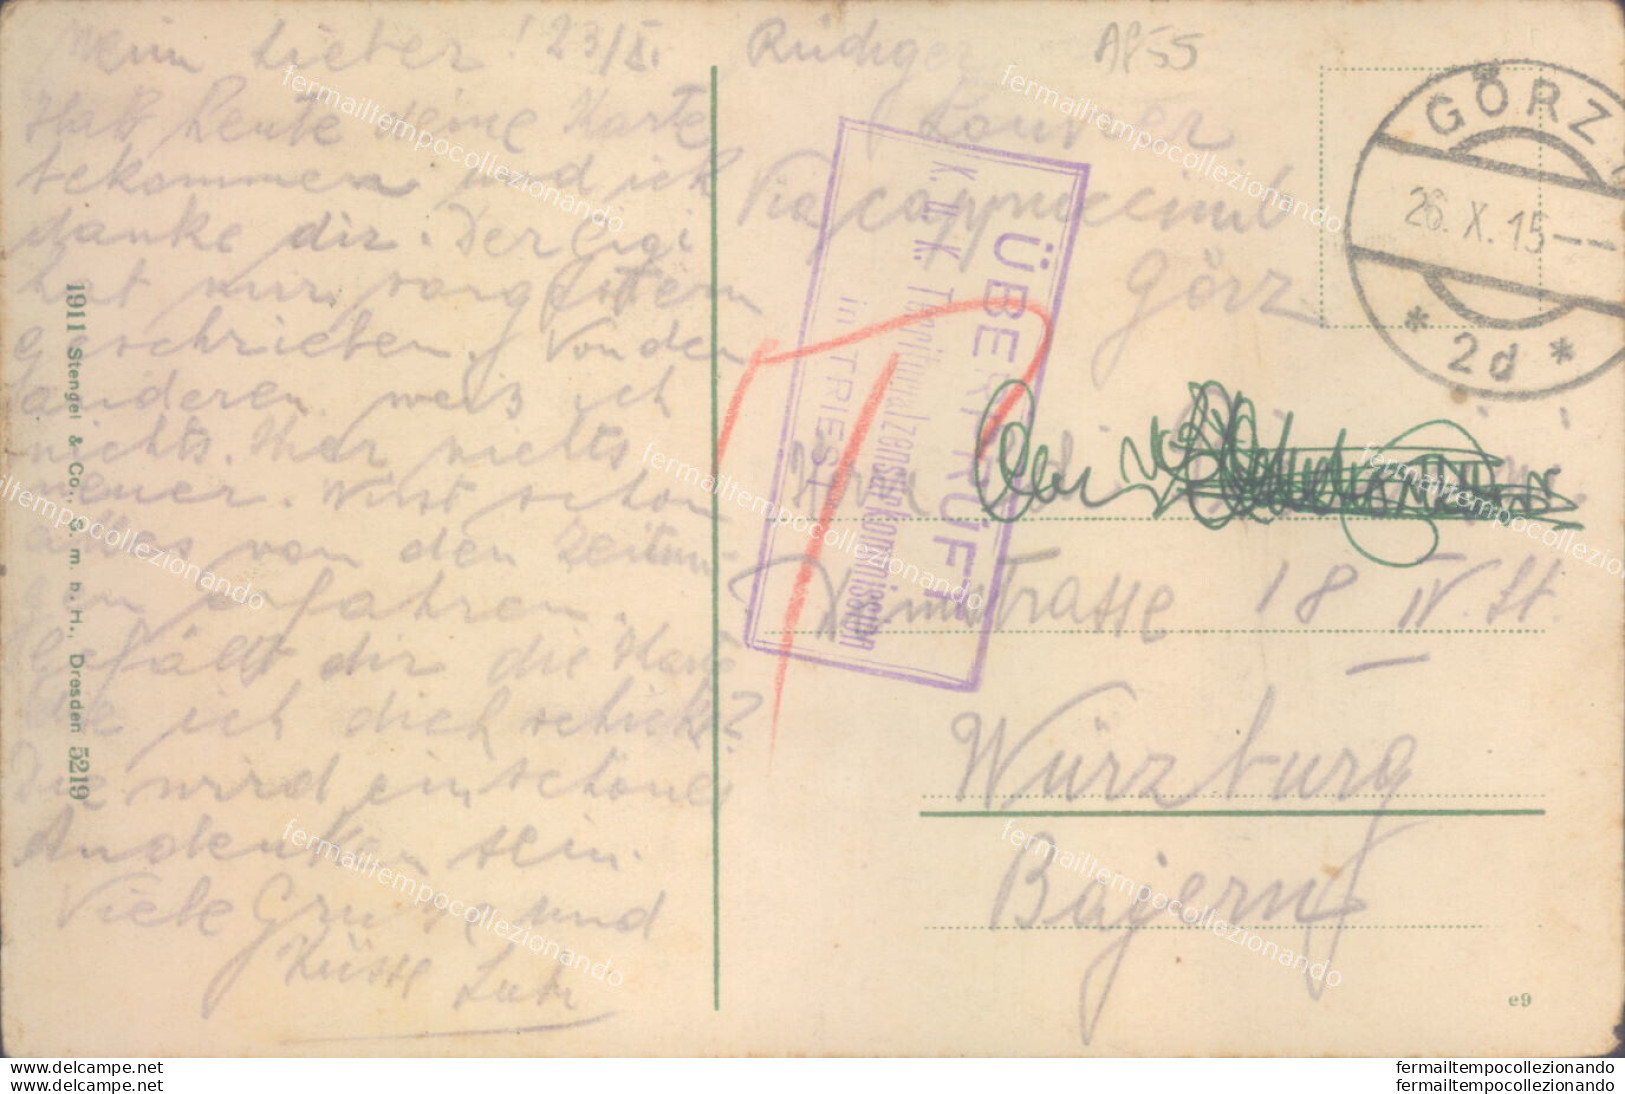 Mein Lieber! 23/X.
Hab heute deine Karte
bekommen und ich
danke dir. Der Gigi
hat nur vorgestern
geschrieben. Von den
anderen weis ich
nichts. Hier nichts
neues. Wirst schon
alles von den Zeitun-
gen erfahren.
Gefällt dir die Karte
die ich dich schickt?
Die wird ein schönes
Andenken sein.
Viele Grüsse und
Küsse
Rüdiger
AP55
Via Cappuccini 6
Görz
GÖRZ 1
26. X. 15
* 2d *
ÜBERPRÜFT
K. u. K. Territorialzensurkommission
in TRIEST
strasse 18 IV. St.
Würzburg
Bajern
1911 Stengel & Co., G. m. b. H., Dresden 5219
e9
fermailtempocollezionando
fermailtempocollezionando
fermailtempocollezionando
fermailtempocollezionando